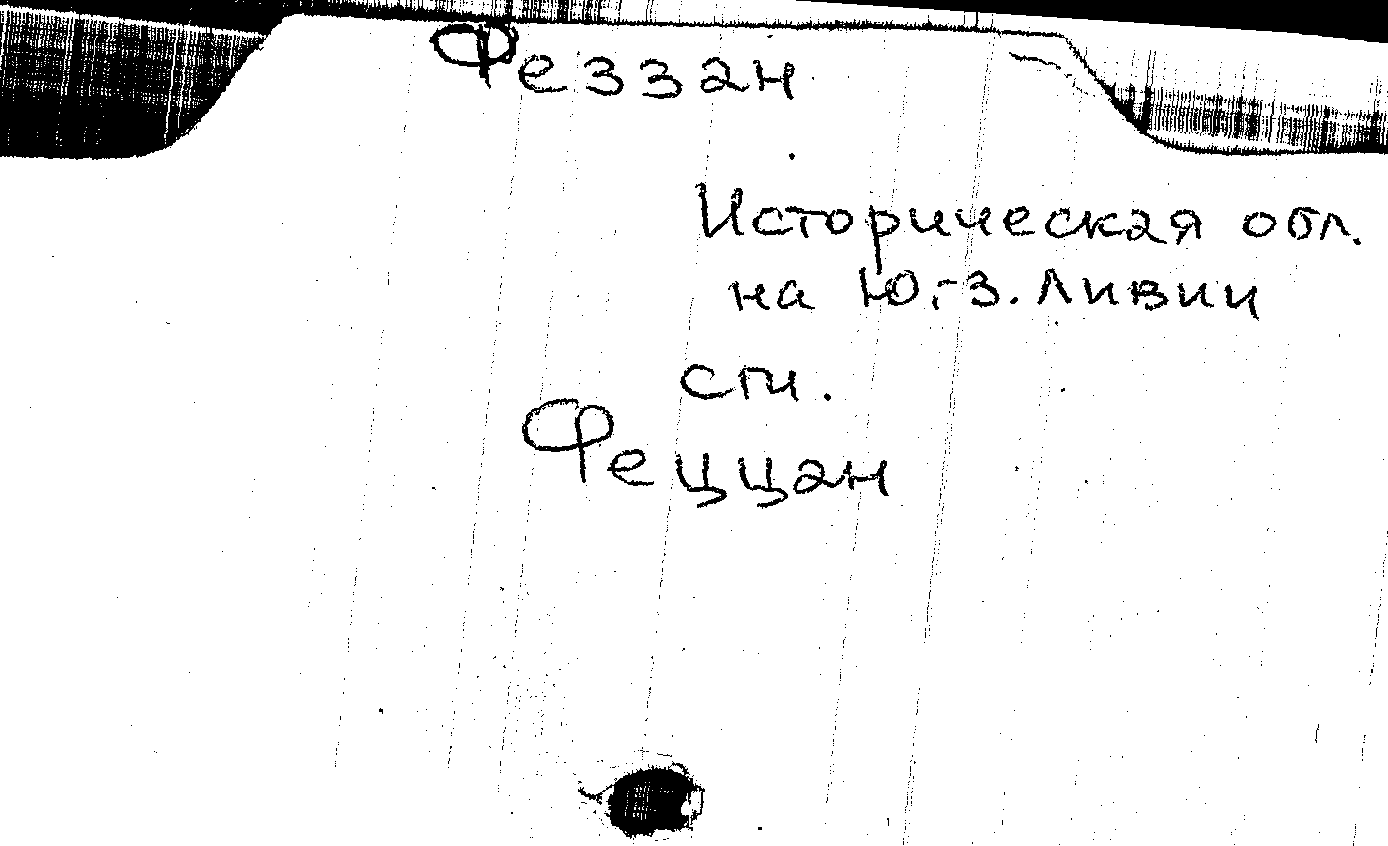 Феззан
Историческая обл.
на Ю.-З. Ливии
см.
Феццан